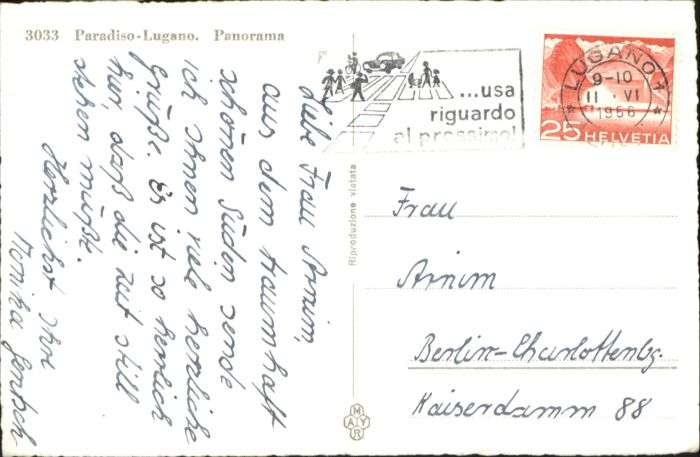 3033 Paradiso-Lugano. Panorama
Liebe Frau Arnim,
aus dem traumhaft
schönen Süden sende
ich Ihnen viele herzliche
Grüße. Es ist so herrlich
hier, daß die Zeit still
stehen müßt.
Herzlichst Ihre
Monika Jentsch
Riproduzione vietata
MAYR
...usa
riguardo
al prossimo!
LUGANO 1
9-10
11 VI
1956
25 HELVETIA
Frau
Arnim
Berlin-Charlottenbg.
Kaiserdamm 88